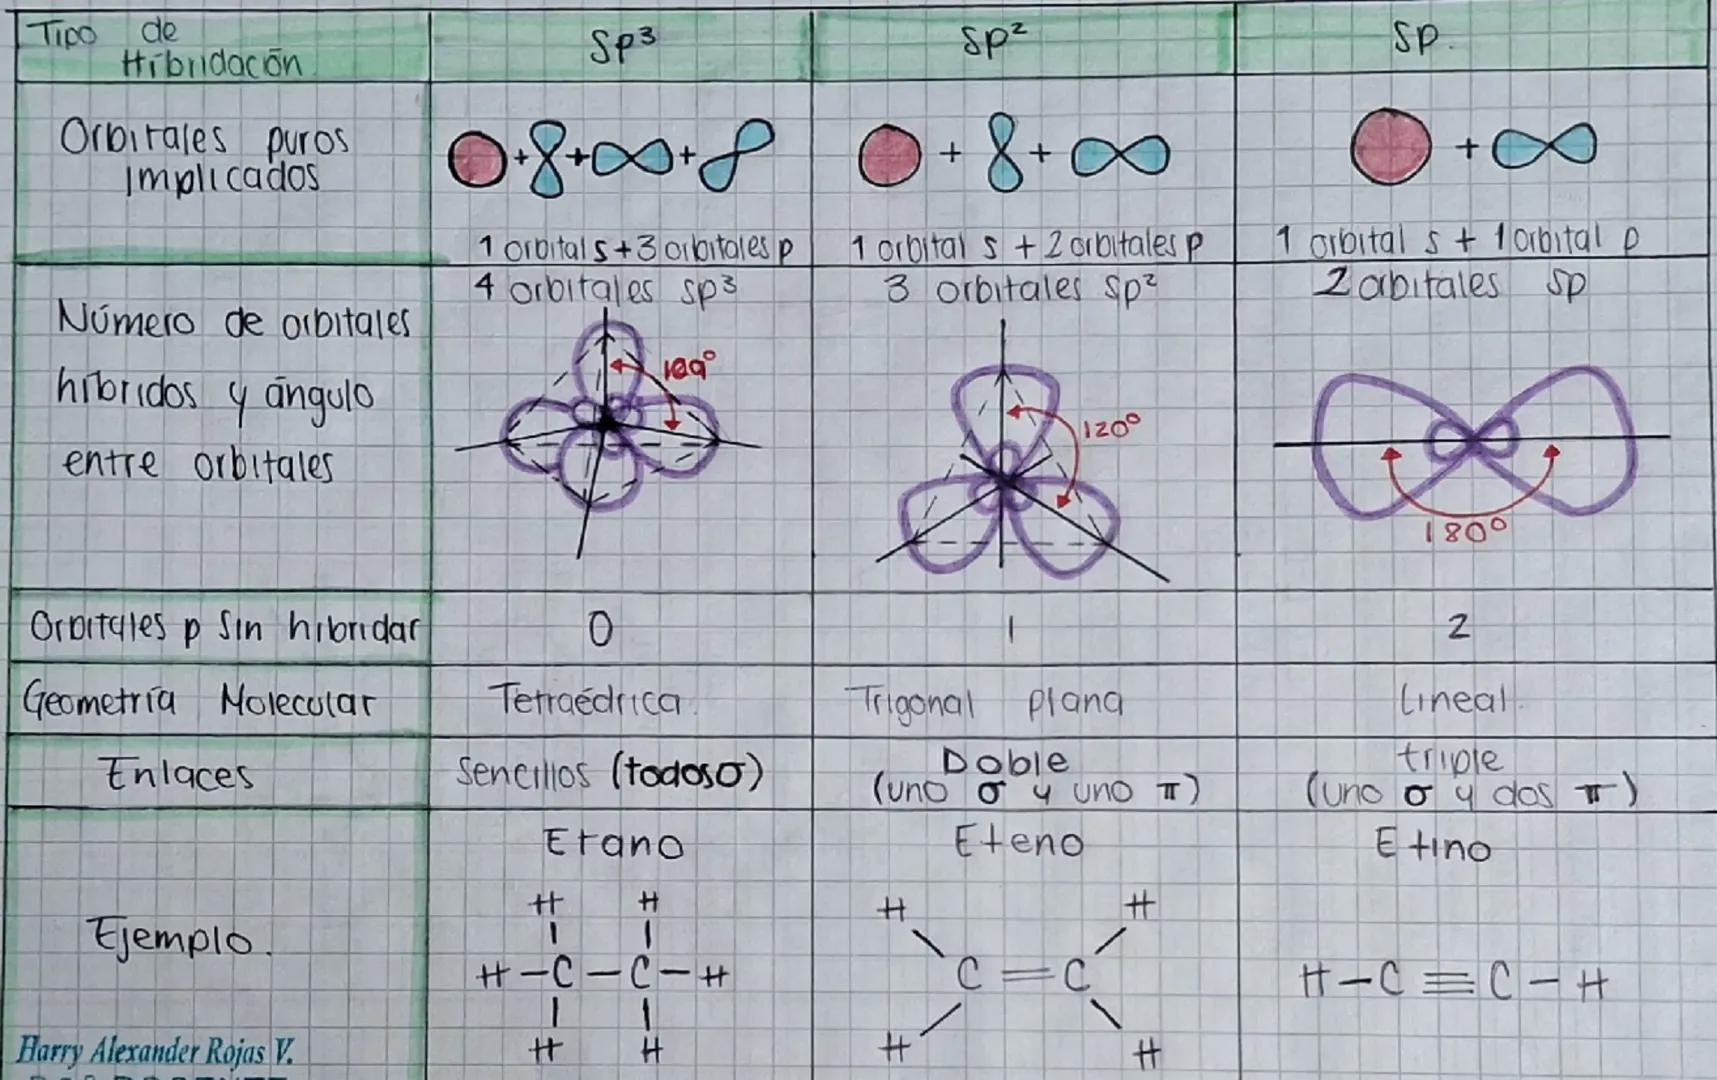 Tipo de
Híbridación
Sp³
Sp²
Sp.
Orbitales puros
implicados
1 orbital s + 3 orbitales p
1 orbital s + 2 orbitales p
1 orbital s + 1 orbital p
Número de orbitales
híbridos y ángulo
entre orbitales
4 orbitales sp³
109°
3 orbitales sp²
120°
2 orbitales sp
180°
Orbitales p Sin hibridar
0
1
2
Geometría Molecular
Tetraédrica.
Trigonal plana
Lineal.
Enlaces
Sencillos (todos σ)
Doble
(uno σ y uno π)
triple
(uno σ y dos π)
Ejemplo.
Etano
H H
H-C-C-H
H H
Eteno
H H
C=C
H H
Etino
H-C≡C-H
Harry Alexander Rojas V.